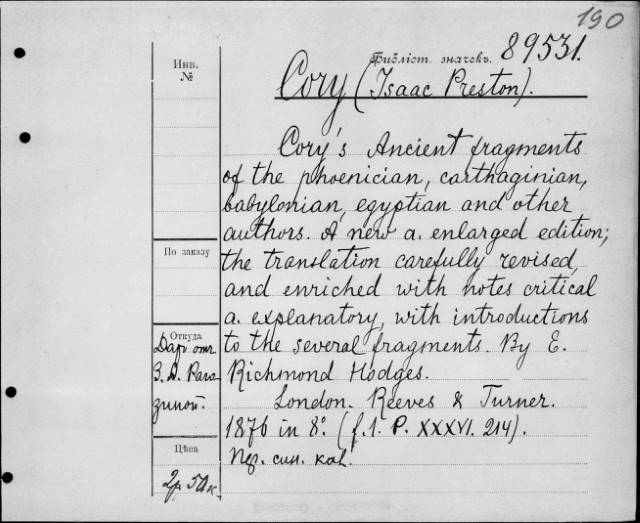 190
Инв.
№
Библіот. значекъ. 89531.
Cory (Isaac Preston).
Cory's Ancient fragments
of the phoenician, carthaginian,
babylonian, egyptian and other
authors. A new a. enlarged edition;
the translation carefully revised,
and enriched with notes critical
a. explanatory, with introductions
to the several fragments. By E.
Richmond Hodges.
London. Reeves & Turner.
1876 in 8°. (f.1. P. XXXVI. 214).
син. кал.
По заказу
Откуда
Даръ отъ
З. А. Раго
зиной.
Цѣна
2р. 50к.